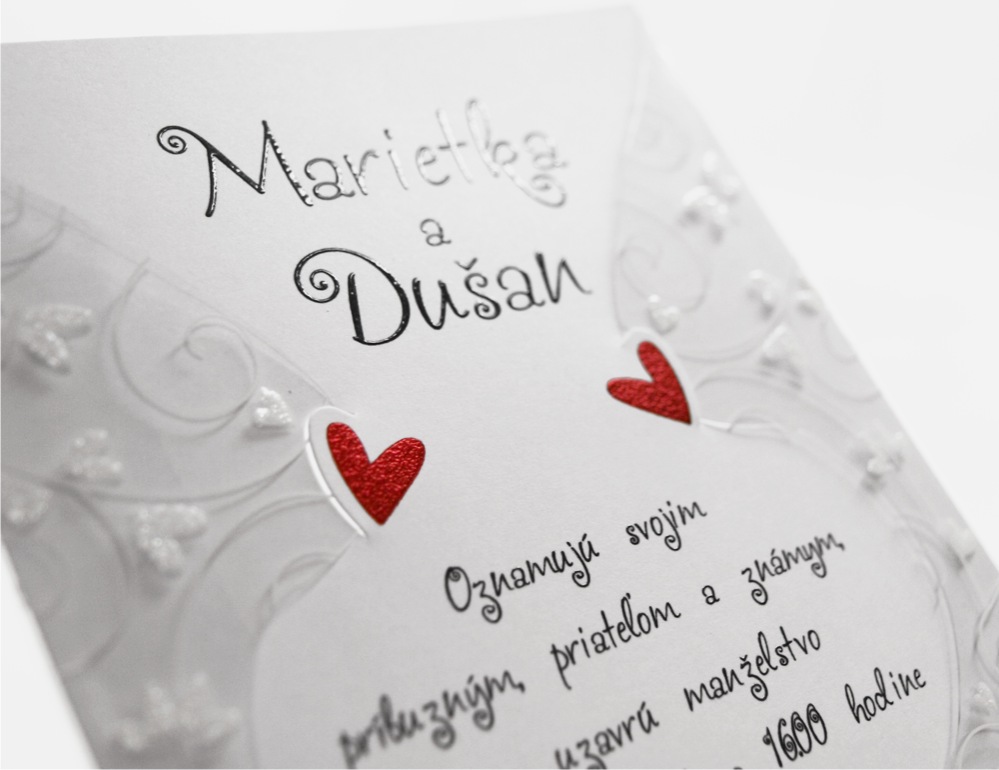 Marietka
a
Dušan
Oznamujú svojim
príbuzným, priateľom a známym,
uzavrú manželstvo
1600 hodine